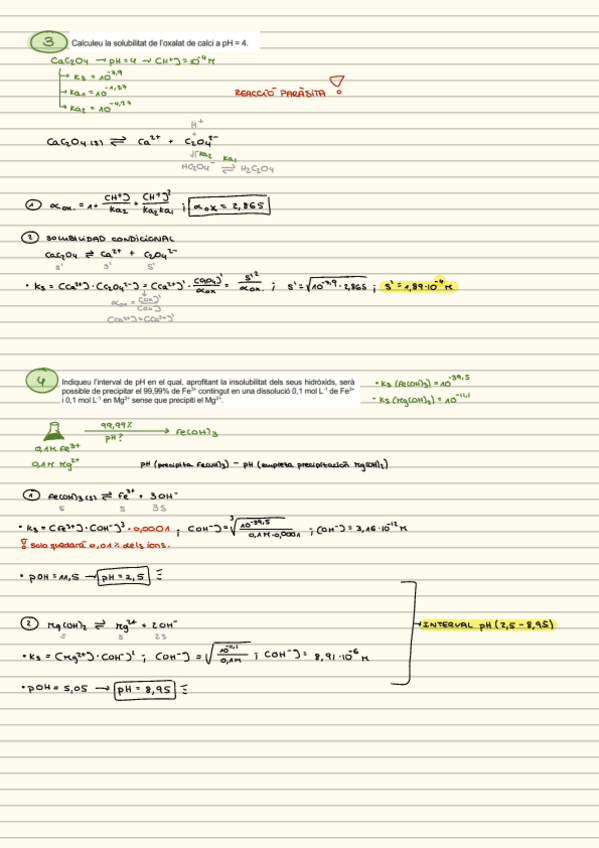 3 Calculeu la solubilitat de l'oxalat de calci a pH = 4.
CaC₂O₄ → pH = 4 → [H⁺] = 10⁻⁴ M
→ Ks = 10⁻⁸,⁹
→ Ka1 = 10⁻¹,²⁷
→ Ka2 = 10⁻⁴,²⁷
REACCIÓ PARÀSITA !
H⁺
+
CaC₂O₄ (s) ⇌ Ca²⁺ + C₂O₄²⁻
⇅ Ka2 Ka1
HC₂O₄⁻ ⇌ H₂C₂O₄
① αox. = 1 + [H⁺]/Ka2 + [H⁺]²/Ka2Ka1 ; αox = 2,865
② SOLUBILIDAD CONDICIONAL
CaC₂O₄ ⇌ Ca²⁺ + C₂O₄²⁻
s' s' s'
• Ks = [Ca²⁺]·[C₂O₄²⁻] = [Ca²⁺]'·[C₂O₄]'/αox = s'²/αox. ; s' = √10⁻⁸,⁹·2,865 ; s' = 1,89·10⁻⁴ M
αox = [ox]'/[ox]
[Ca²⁺] = [Ca²⁺]'
4 Indiqueu l'interval de pH en el qual, aprofitant la insolubilitat dels seus hidròxids, serà
possible de precipitar el 99,99% de Fe³⁺ contingut en una dissolució 0,1 mol L⁻¹ de Fe³⁺
i 0,1 mol L⁻¹ en Mg²⁺ sense que precipiti el Mg²⁺.
• Ks (Fe(OH)₃) = 10⁻³⁹,⁵
• Ks (Mg(OH)₂) = 10⁻¹¹,¹
99,99% → Fe(OH)₃
pH?
0,1M Fe³⁺
0,1M Mg²⁺
pH (precipita Fe(OH)₃) – pH (empieza precipitación Mg(OH)₂)
① Fe(OH)₃ (s) ⇌ Fe³⁺ + 3OH⁻
s s 3s
• Ks = [Fe³⁺]·[OH⁻]³ · 0,0001 ; [OH⁻] = ³√10⁻³⁹,⁵/0,1M·0,0001 ; [OH⁻] = 3,16·10⁻¹² M
! Solo quedará 0,01% dels ions.
• pOH = 11,5 → pH = 2,5
② Mg(OH)₂ ⇌ Mg²⁺ + 2OH⁻
s s 2s
INTERVAL pH (2,5 - 8,95)
• Ks = [Mg²⁺]·[OH⁻]² ; [OH⁻] = √10⁻¹¹,¹/0,1M ; [OH⁻] = 8,91·10⁻⁶ M
• pOH = 5,05 → pH = 8,95